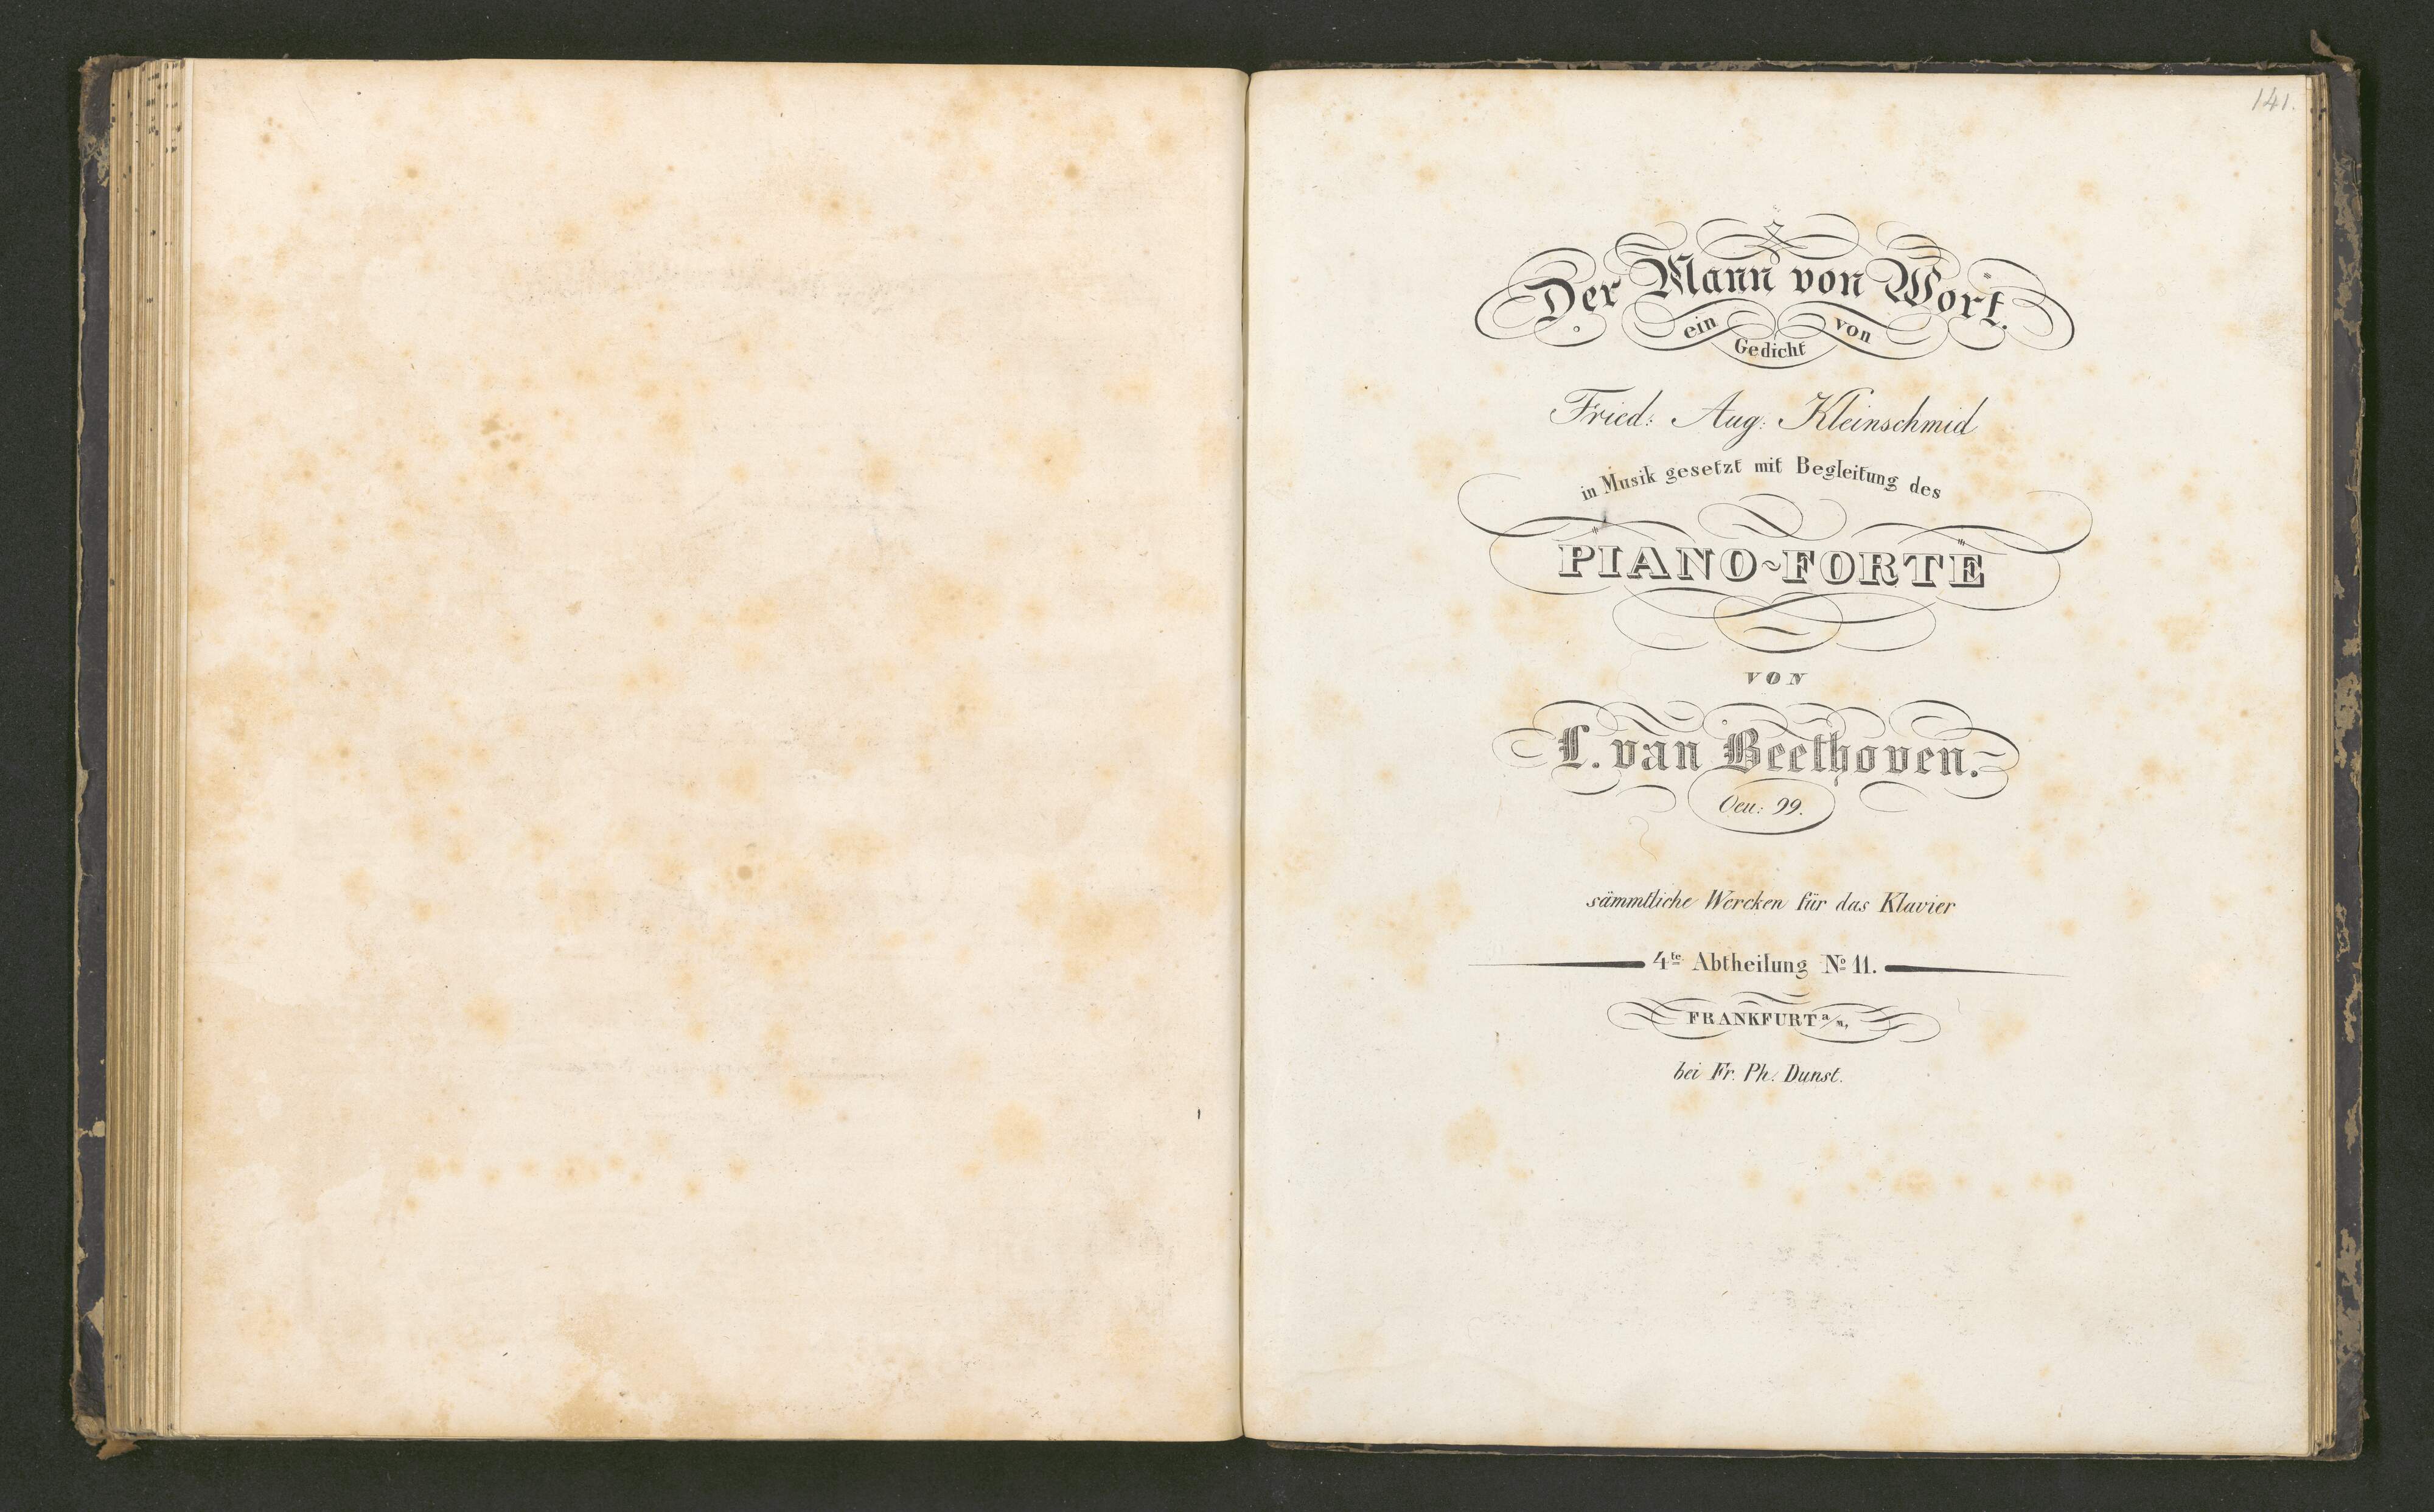 141.
Der Mann von Wort.
ein Gedicht von
Fried: Aug: Kleinschmid
in Musik gesetzt mit Begleitung des
PIANO~FORTE
VON
L. van Beethoven.
Oeu: 99.
sämmtliche Wercken für das Klavier
4te Abtheilung No 11.
FRANKFURT a/m,
bei Fr. Ph. Dunst.